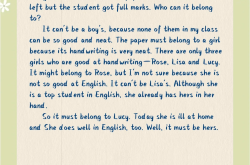 left but the student got full marks. Who can it belong
to?
It can't be a boy's, because none of them in my class
can be so good and neat. The paper must belong to a girl
because its handwriting is very neat. There are only three
girls who are good at handwriting—Rose, Lisa and Lucy.
It might belong to Rose, but I'm not sure because she is
not so good at English. It can't be Lisa's. Although she
is a top student in English, she already has hers in her
hand.
So it must belong to Lucy. Today she is ill at home
and She does well in English, too. Well, it must be hers.